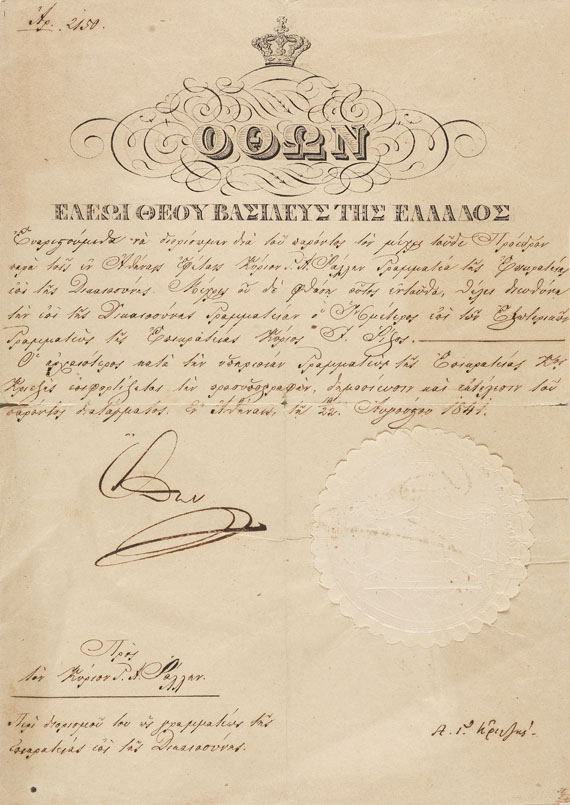 Ἀρ. 2150.
ΟΘΩΝ
ΕΛΕΩΙ ΘΕΟΥ ΒΑΣΙΛΕΥΣ ΤΗΣ ΕΛΛΑΔΟΣ
Εὐαρεστούμεθα νὰ διορίσωμεν διὰ τοῦ παρόντος τὸν μέχρι τοῦδε Πρόεδρον
παρὰ τοῖς ἐν Ἀθήναις Ἐφέταις Κύριον Γ. Α. Ράλλην Γραμματέα τῆς Ἐπικρατείας
ἐπὶ τῆς Δικαιοσύνης. Μέχρις οὗ δὲ φθάσῃ οὗτος ἐνταῦθα, θέλει διευθύνει
τὴν ἐπὶ τῆς Δικαιοσύνης Γραμματείαν ὁ Ἡμέτερος ἐπὶ τῶν Ἐξωτερικῶν
Γραμματεὺς τῆς Ἐπικρατείας Κύριος Ρίζος.
Ὁ ἀρχαιότερος κατὰ τὴν ὑπηρεσίαν Γραμματεὺς τῆς Ἐπικρατείας Κος
Κριεζῆς ἐπιφορτίζεται τὴν προσυπογραφὴν, δημοσίευσιν καὶ ἐκτέλεσιν τοῦ
παρόντος διατάγματος. Ἐν Ἀθήναις, τῇ 22 Αὐγούστου 1841.
Ὄθων
Πρὸς
τὸν Κύριον Γ. Α. Ράλλην.
Περὶ διορισμοῦ του ὡς γραμματέως τῆς
Ἐπικρατείας ἐπὶ τῆς Δικαιοσύνης.
Α. Γ. Κριεζῆς.